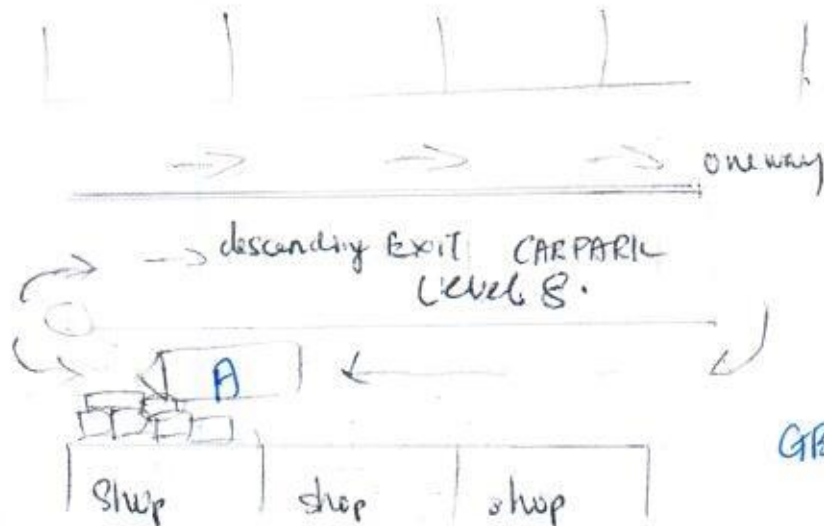 one way
descending EXIT CARPARK
Level 8.
A
GB
Shop shop shop